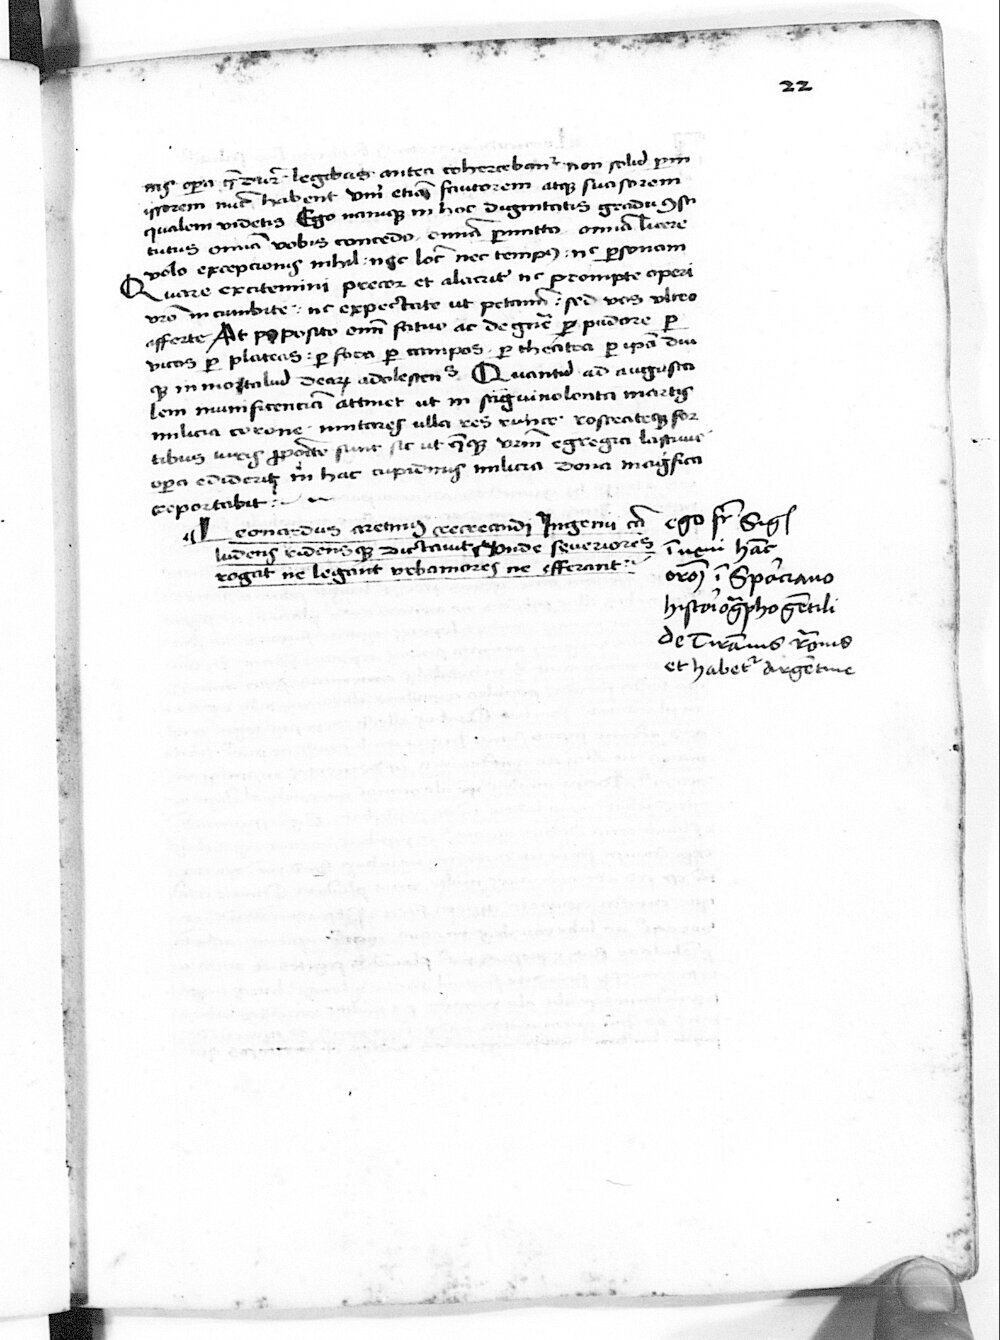 22
nis opera q̄ duris legibus antea cohercebantᵘʳ non solum perm
issorem nunc habent Verum etiam fautorem atque suasorem
qualem videtis Ego nanque in hoc dignitatis gradu constı
tutus omnia vobis concedo omnia permitto omnia licere
volo excepcionis nihil: nec locum nec tempus: nec personam
Quare excitemini precor et alacriter nc prompte operi
vestro incumbite: nc expectate ut petamini: sed vos ultro
afferte At proposito enim statuo ac decerno per pudore per
vicos per plateas: per fora per campos. per theatra per ipsa diui
que in mortalium dearum adolescens Quantum ad augusta
lem munificenciam attinet ut in sanguinolenta martis
milicia corone militares ulla res rostrateque for
tibus viris proposite sunt sic ut quisque vestrum egregia lasciuie
opera ediderit in hac cupidinis milicia dona magnifica
reportabit:
Leonardus aretinus recreandi Ingenii causa
ludens ridensque dictauit Vnde seueriores
rogat ne legant vrbaniores ne efferant:
ego fr̄ Sigꝭ
īueni hāc
orōēꝫ ī Sparciano
historiogᵃpho gētili
de Tirānis Rōanis
et habetʳ Argētine